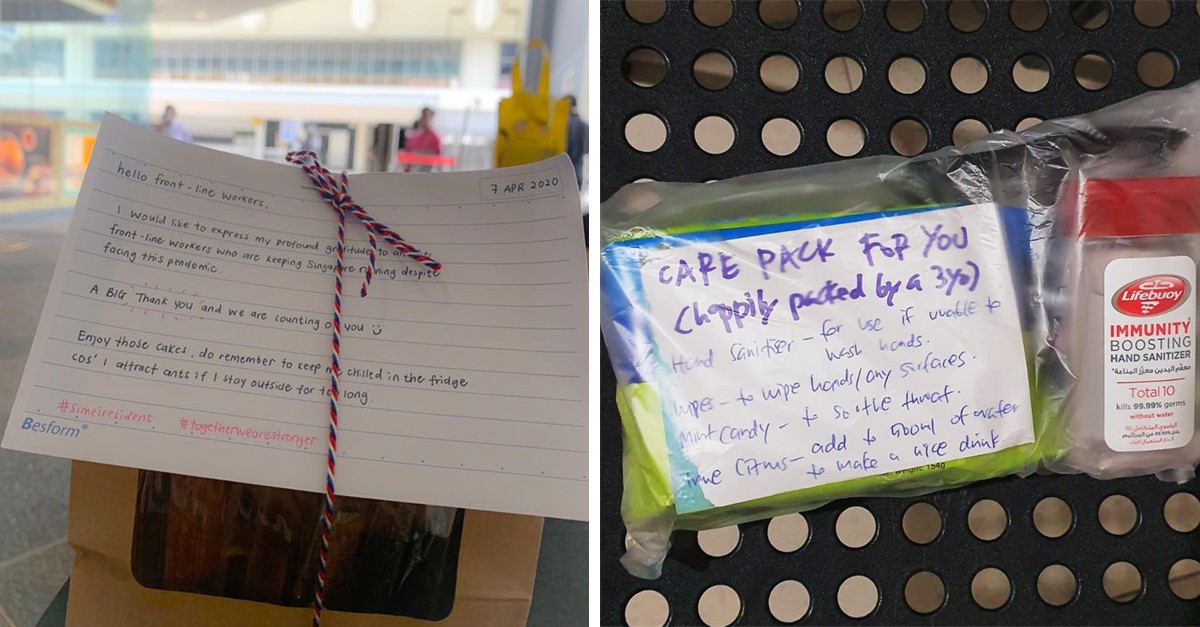 hello front-line workers.
7 APR 2020
I would like to express my profound gratitude to
front-line workers who are keeping Singapore running despite
facing this pandemic.
A BIG Thank you and we are counting on you
Enjoy those cakes, do remember to keep chilled in the fridge
cos' I attract ants if I stay outside for too long.
#simeiresident #togetherwearestronger
Besform®
CARE PACK FOR YOU
(happily packed by a 3yo)
Hand Sanitiser - for use if unable to
wash hands.
wipes - to wipe hands/any surfaces.
Mint Candy - to soothe throat.
Citrus - add to 500ml of water
to make a nice drink
Weight 154g
Lifebuoy
IMMUNITY
BOOSTING
HAND SANITIZER
معقم اليدين معزز المناعة*
Total 10
kills 99.99% germs
without water